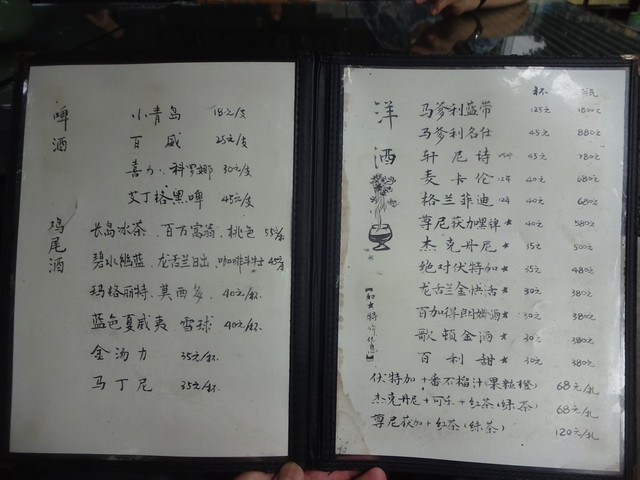 啤酒
小青岛 18元/支
百威 25元/支
喜力、科罗娜 30元/支
艾丁格黑啤 45元/支
鸡尾酒
长岛冰茶、百万富翁、桃色 55元/杯
碧水幽蓝、龙舌兰日出、咖啡斗牛士 45元/杯
玛格丽特、莫西多、 40元/杯.
蓝色夏威夷 雪球 40元/杯.
金汤力 35元/杯.
马丁尼 35元/杯.
洋酒
杯 瓶
马爹利蓝带 125元 1800元
马爹利名仕 45元 880元
轩尼诗 45元 780元
麦卡伦 12年 40元 680元
格兰菲迪 12年 40元 680元
尊尼获加黑牌★ 40元 580元
杰克丹尼★ 35元 500元
绝对伏特加★ 35元 480元
龙舌兰金快活★ 30元 380元
百加得朗姆酒★ 30元 380元
歌顿金酒★ 30元 380元
百利甜★ 30元 380元
伏特加+番石榴汁(果粒橙) 68元/扎
杰克丹尼+可乐+红茶(绿茶) 68元/扎
尊尼获加+红茶(绿茶) 120元/扎